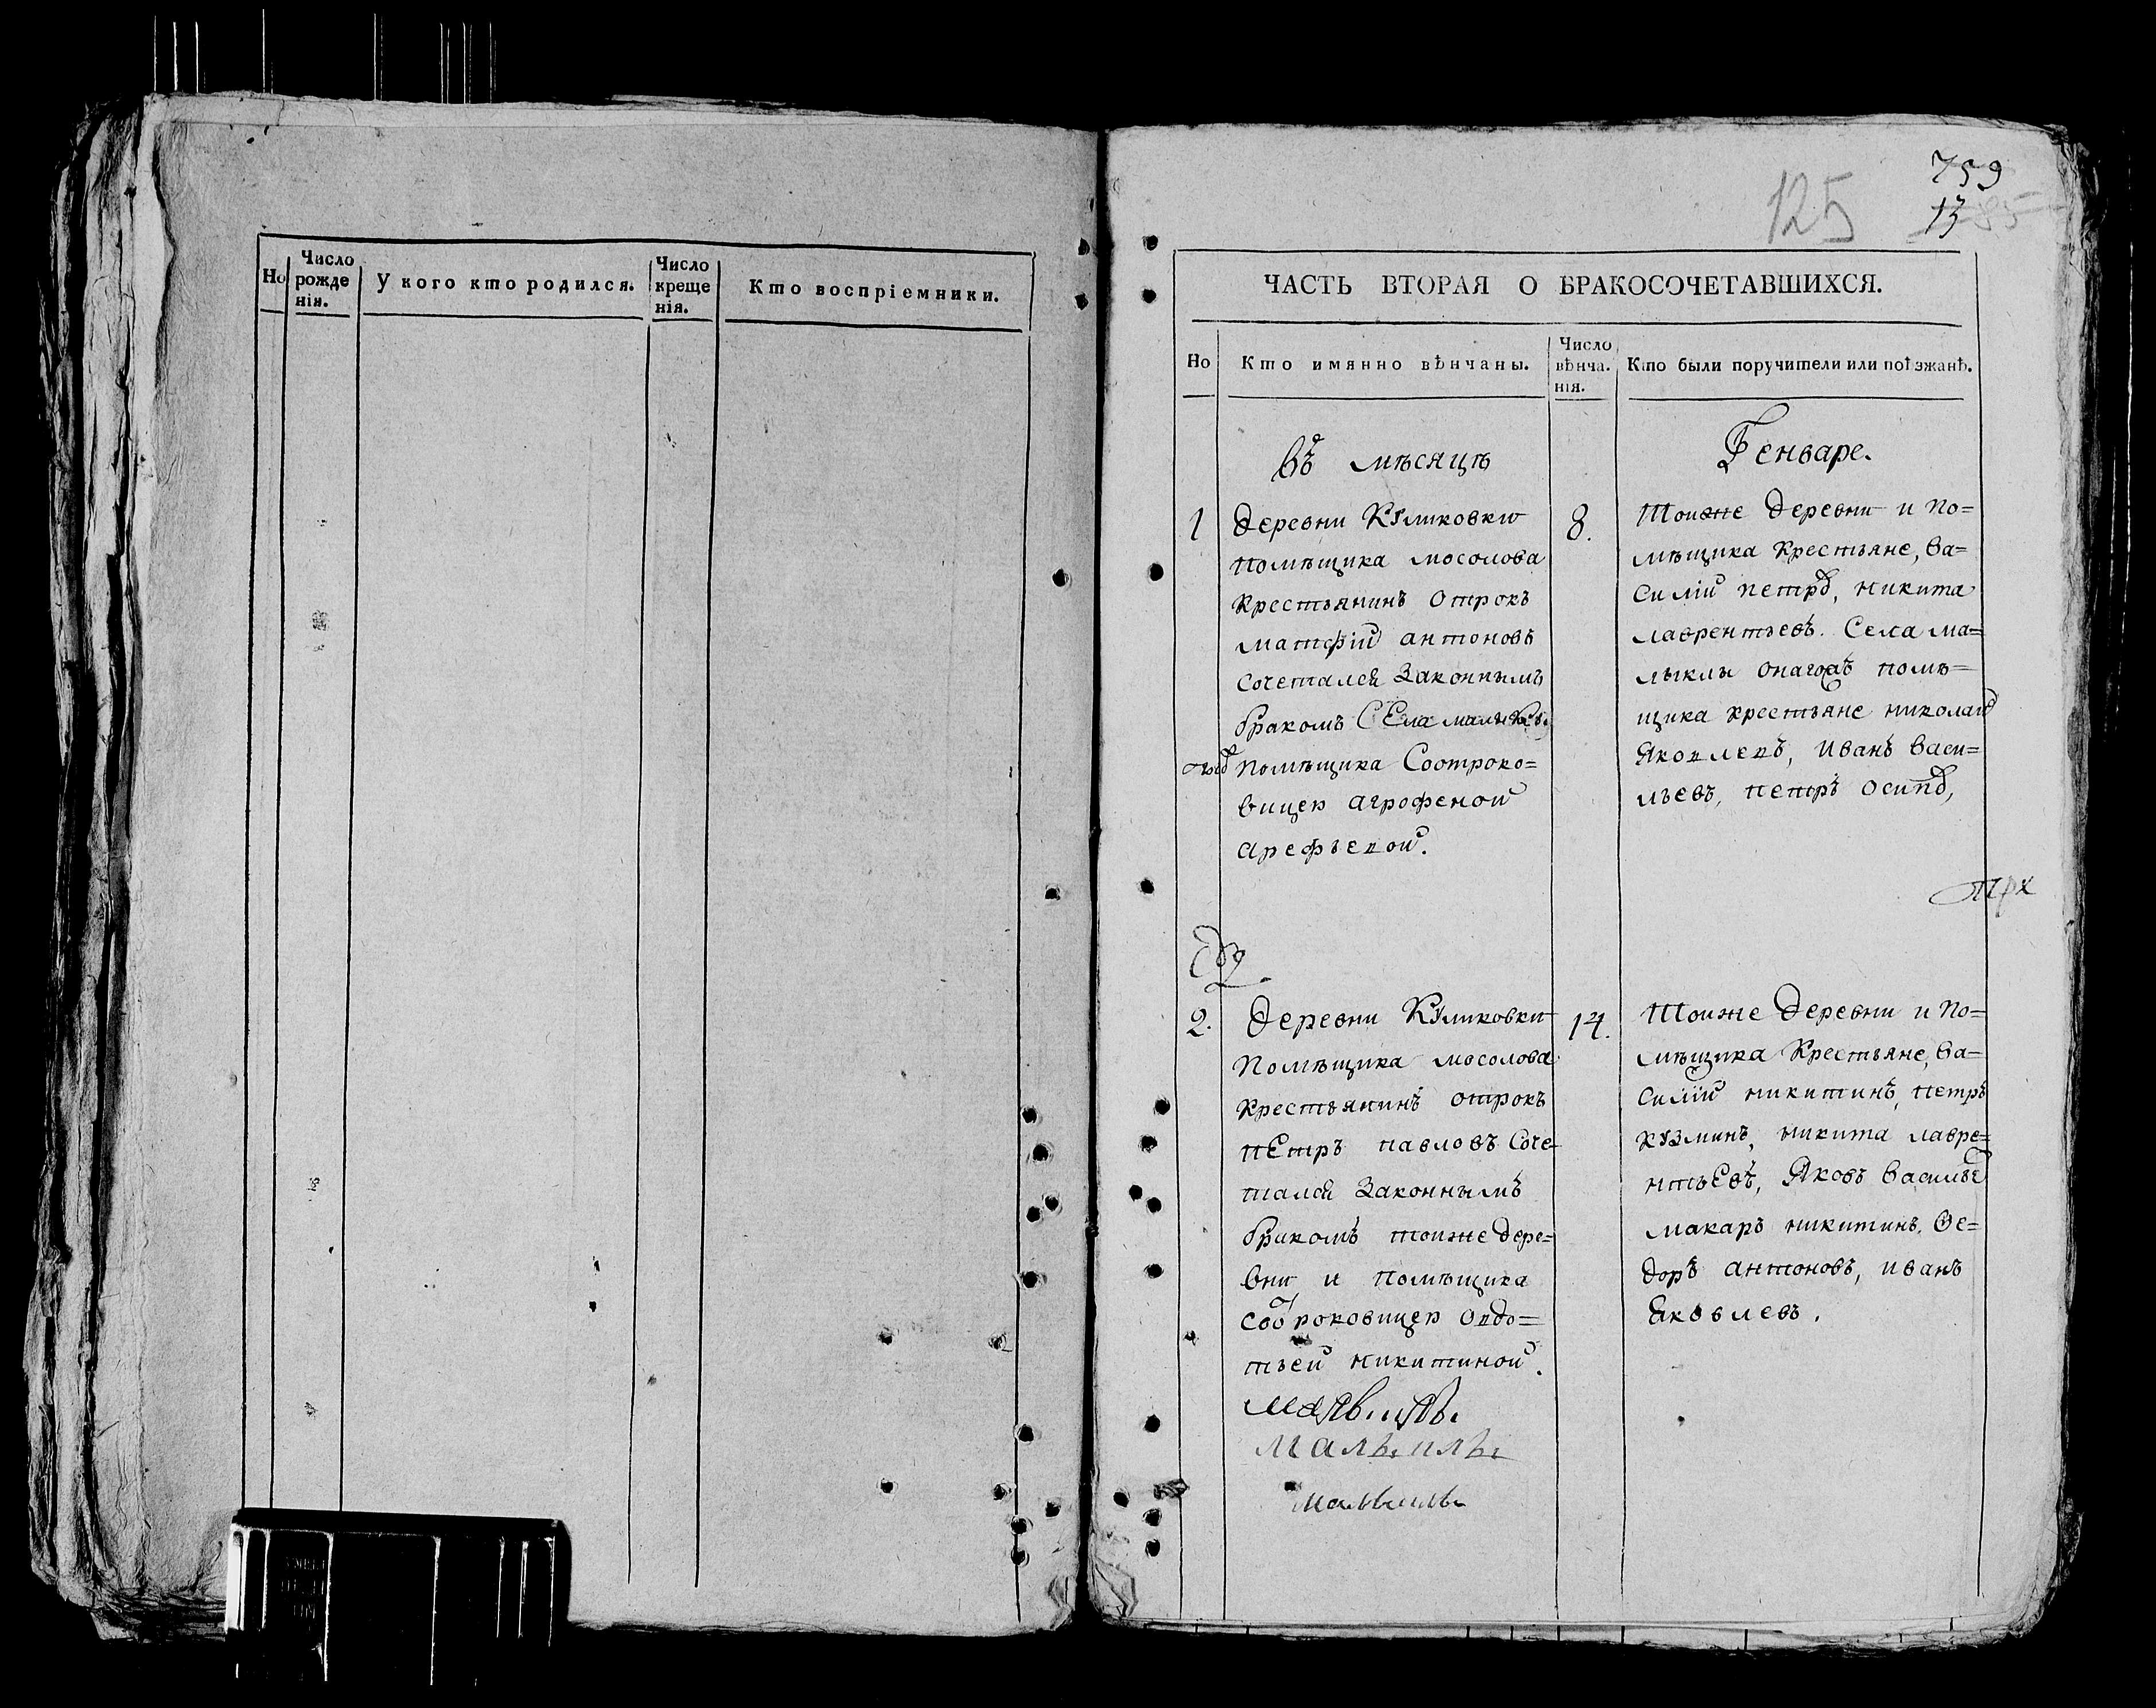 Но
Число рожденія.
У кого кто родился.
Число крещенія.
Кто воспріемники.
759
125
13 85
ЧАСТЬ ВТОРАЯ О БРАКОСОЧЕТАВШИХСЯ.
Но
Кто имянно вѣнчаны.
Число вѣнча.нія.
Кто были поручители или поѣзжанѣ.
въ мѣсяцѣ
Генваре.
1
деревни Кꙋликовки
помѣщика мосолова
крестьянинъ отрокъ
матфій антоновъ
сочетался законнымъ
бракомъ Села малыклы
помѣщика Соотроко=
вицею агрофеной
арефьевой.
8.
Тоиже деревни и по=
мѣщика крестьяне, ва=
силій петровъ, никита
лаврентьевъ. Села ма=
лыклы онагожъ помѣ=
щика крестьяне николай
Яковлевъ, иванъ васи=
льевъ, петръ осиповъ,
2.
деревни Кꙋликовки
помѣщика мосолова
крестьянинъ отрокъ
пЕтръ павловъ Соче=
тался законнымъ
бракомъ тоиже дере=
вни и помѣщика
соотроковицею овдо=
тьей никитиной.
14.
Тоиже деревни и по=
мѣщика крестьяне, ва=
силій никитинъ, петръ
кꙋзминъ, никита лавре=
нтьЕвъ, Яковъ василье
макаръ никитинъ, Ѳе=
доръ антоновъ, иванъ
Яковлевъ.